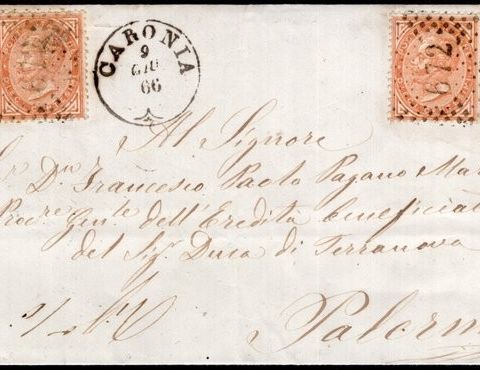 672
CARONIA
9
GIU
66
672
Al Signore
Sr. Dn. Francesco Paolo Pagano Mar
Procre. Gen.le dell'Eredità beneficiat
del Sigr. Duca di Terranova
Palerm